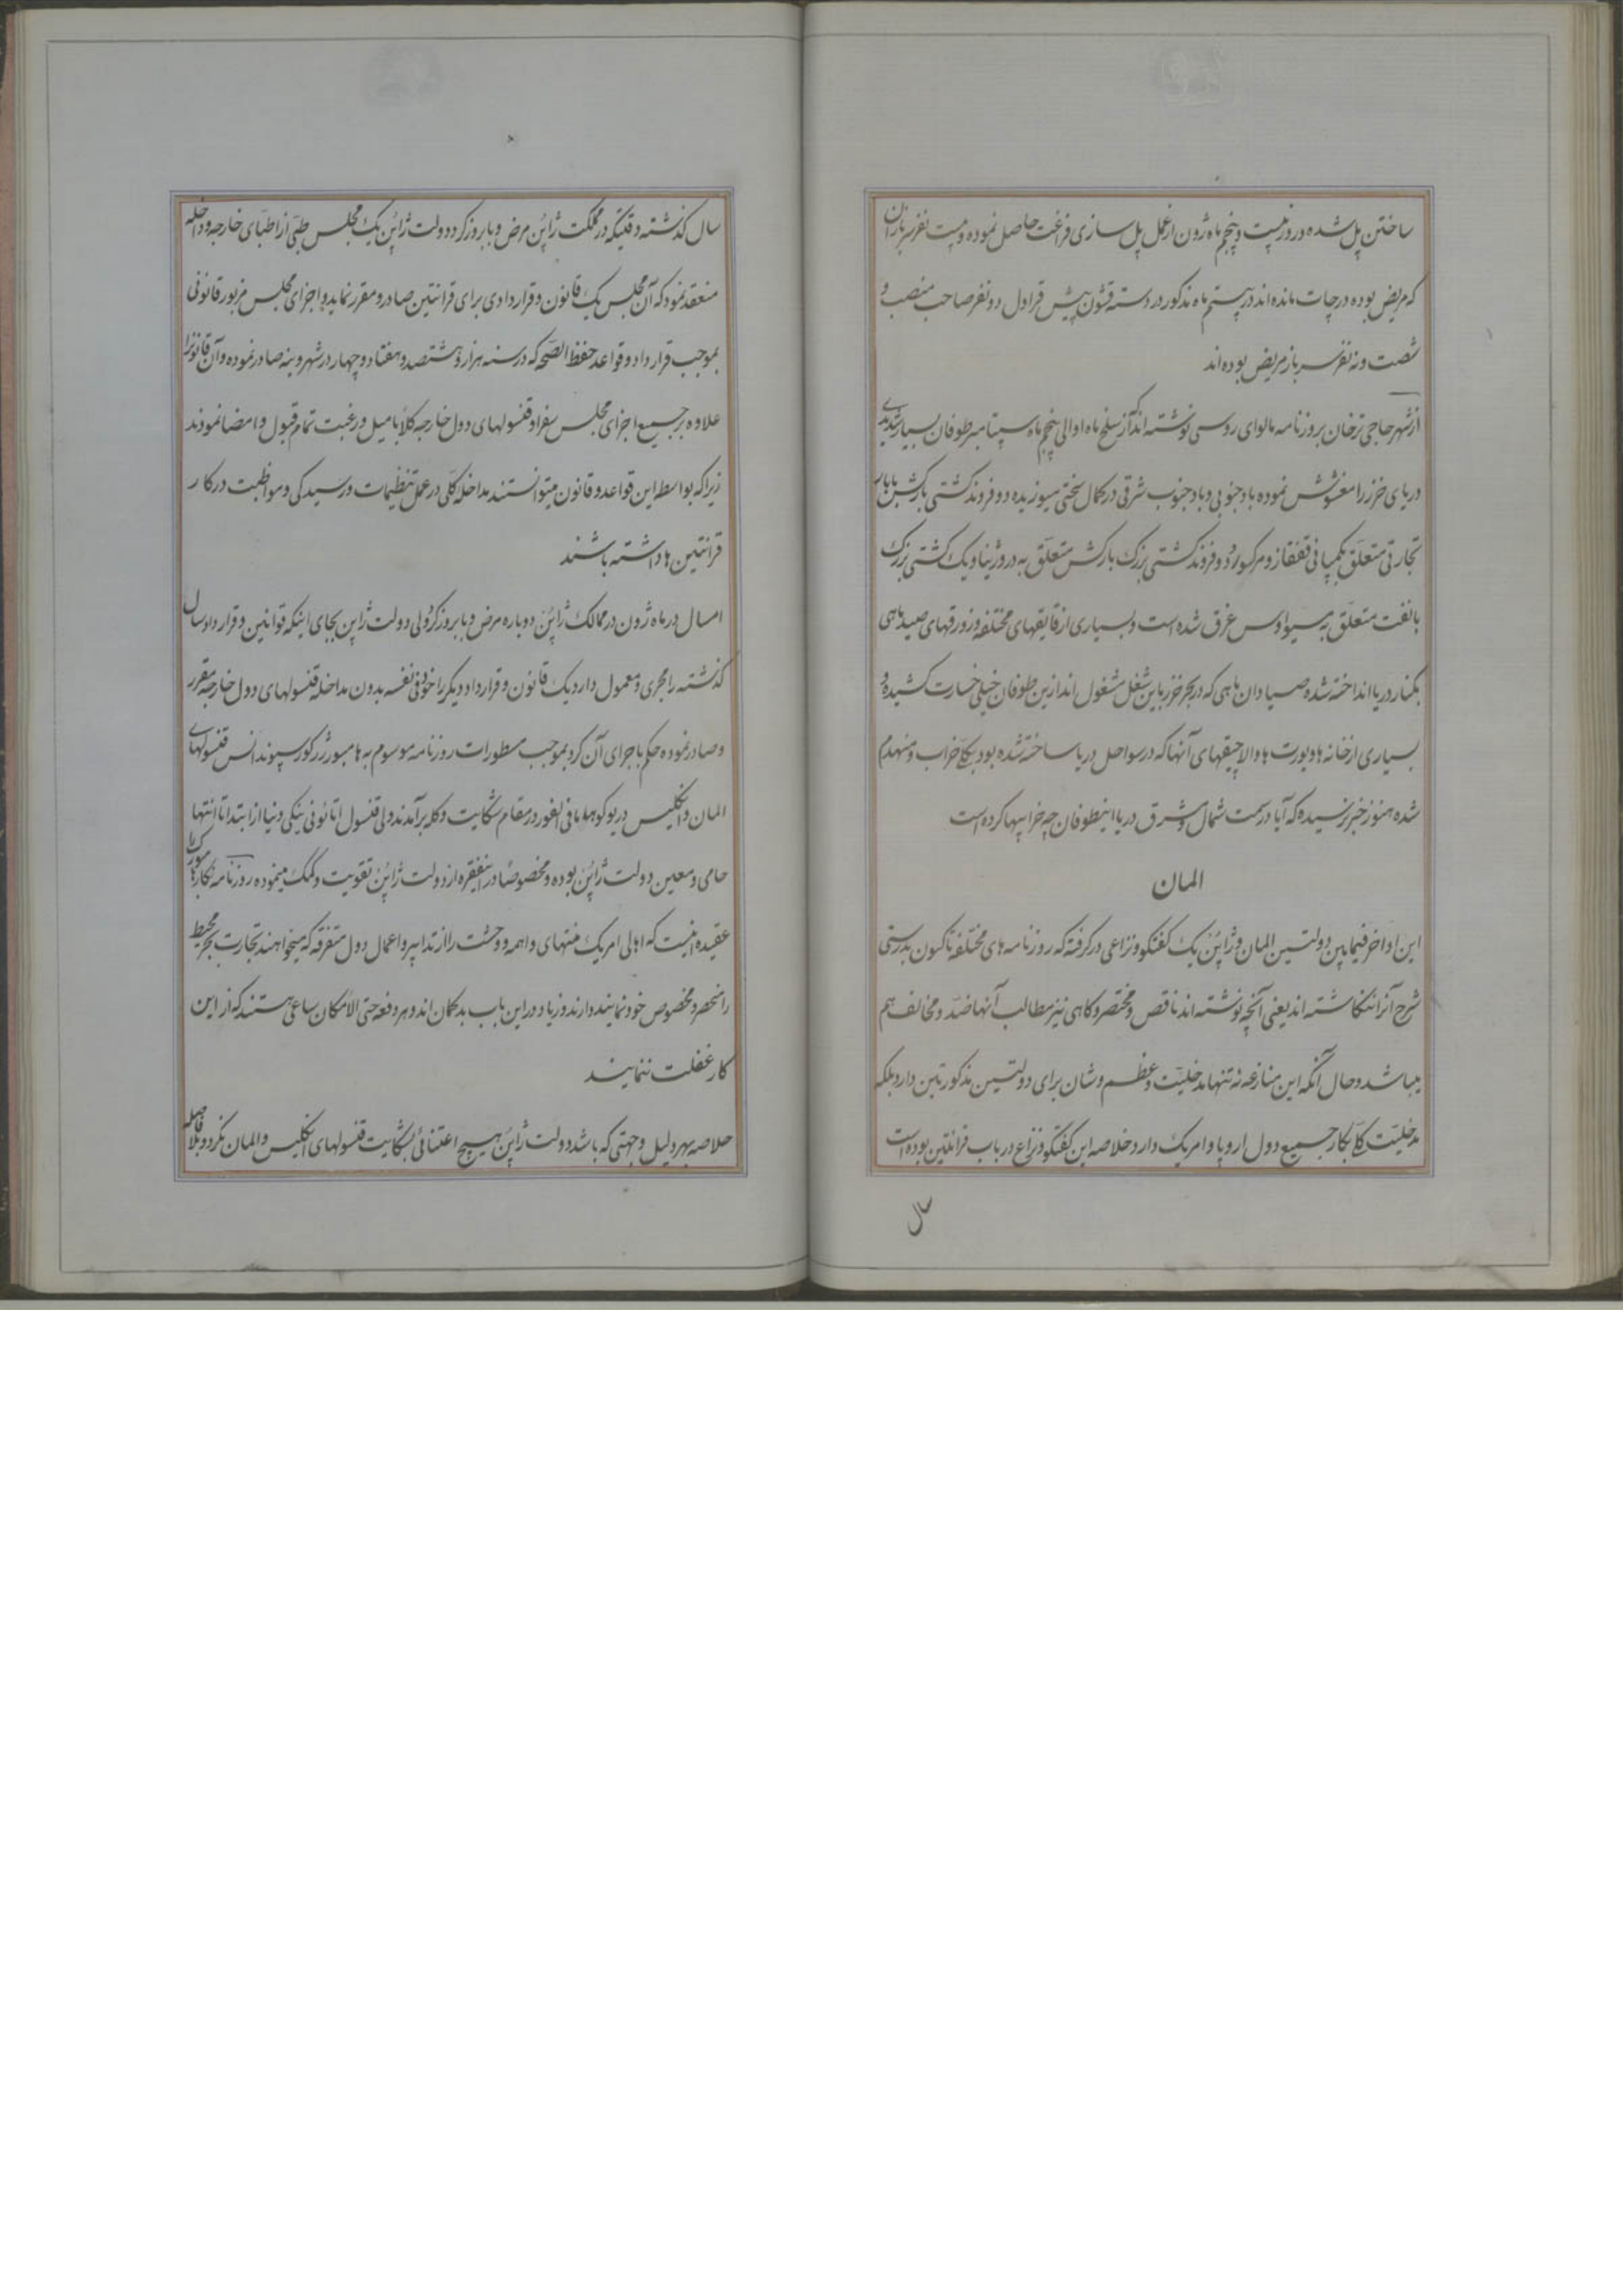 ساختن پل شده در روز بیست و پنجم ماه ژون از عمل پل سازی فراغت حاصل نموده و بیست نفر سربازان
که مریض بوده در چات مانده‌اند در بیستم ماه مذکور در دسته قشون پیش قراول دو نفر صاحب منصب و
شصت و نه نفر سرباز مریض بوده‌اند
از شهر حاجی ترخان بروزنامه مالوای روسی نوشته‌اند که از سلخ ماه اوالی پنجم ماه سپتامبر طوفان بسیار شدیدی
دریای خزر را مغشوش نموده باد جنوبی و باد جنوب شرقی در کمال سختی میوزیده دو فروند کشتی بارکش با بار
تجارتی متعلق بکمپانی قفقاز و مرکور و دو فروند کشتی بزرک بارکش متعلق به دروژینا و یک کشتی بزرک
با نفت متعلق به سیواوس غرق شده است و بسیاری از قایقهای مختلفه و زورقهای صید ماهی
بکنار دریا انداخته شده صیادان ماهی که در بحر خزر باین شغل مشغول‌اند از این طوفان خیلی خسارت کشیده و
بسیاری از خانه‌ها و یورت‌ها و الاچیقهای آنها که در سواحل دریا ساخته شده بود بکلی خراب و منهدم
شده هنوز خبر نرسیده که آیا در سمت شمال و شرق دریا اینطوفان چه خرابیها کرده است
المان
این اواخر فیمابین دولتین المان و ژاپن یک کفتکو و نزاعی در کرفته که روزنامه‌های مختلفه تاکنون بدرستی
شرح آنرا ننکاشته‌اند یعنی آنچه نوشته‌اند ناقص و مختصر و کاهی نیز مطالب آنها ضد و مخالف هم
میباشد و حال آنکه این منازعه نه تنها مدخلیت و عظم و شان برای دولتین مذکورتین دارد بلکه
مدخلیت کلی بکار جمیع دول اروپا و امریک دارد خلاصه این کفتکو و نزاع در باب قرانتین بوده است
سال
سال کذشته وقتیکه در مملکت ژاپن مرض وبا بروز کرد دولت ژاپن یک مجلس طبی از اطبای خارجه و داخله
منعقد نمود که آن مجلس یک قانون و قراردادی برای قرانتین صادر و مقرر نماید و اجزای مجلس مزبور قانونی
بموجب قرارداد و قواعد حفظ الصحه که در سنه هزار و هشتصد و هفتاد و چهار در شهر وینه صادر نموده و آن قانونرا
علاوه بر جمیع اجزای مجلس سفرا و قنسولهای دول خارجه کلاً با میل و رغبت تمام قبول و امضا نمودند
زیرا که بواسطه این قواعد و قانون میتوانستند مداخله کلی در عمل تنظیمات و رسیدکی و مواظبت در کار
قرانتین‌ها داشته باشند
امسال در ماه ژون در ممالک ژاپن دوباره مرض وبا بروز کرد ولی دولت ژاپن بجای اینکه قوانین و قرارداد سال
کذشته را مجری و معمول دارد یک قانون و قرارداد دیکر را خود فی نفسه بدون مداخله قنسولهای دول خارجه مقرر
و صادر نموده حکم باجرای آن کرد بموجب مسطورات روزنامه موسوم به هامبورژر کورسپوندانس قنسولهای
المان و انکلیس در یوکوهاما فی الفور در مقام شکایت و کله برآمدند ولی قنسول اتاتونی ینکی دنیا از ابتدا تا انتها
حامی و معین دولت ژاپن بوده و مخصوصاً در اینفقره از دولت ژاپن تقویت و کمک مینموده روزنامه نکار
عقیده اینست که اهالی امریک منتهای واهمه و وحشت را از تدابیر و اعمال دول متفرقه که میخواهند تجارت بحر محیط
را منحصر و مخصوص خود نمایند دارند و زیاد در این باب بدکمان‌اند و هر دفعه حتی الامکان ساعی هستند که از این
کار غفلت ننمایند
خلاصه بهر دلیل و جهتی که باشد دولت ژاپن هیچ اعتنائی بشکایت قنسولهای انکلیس و المان نکرد و بلافاصله